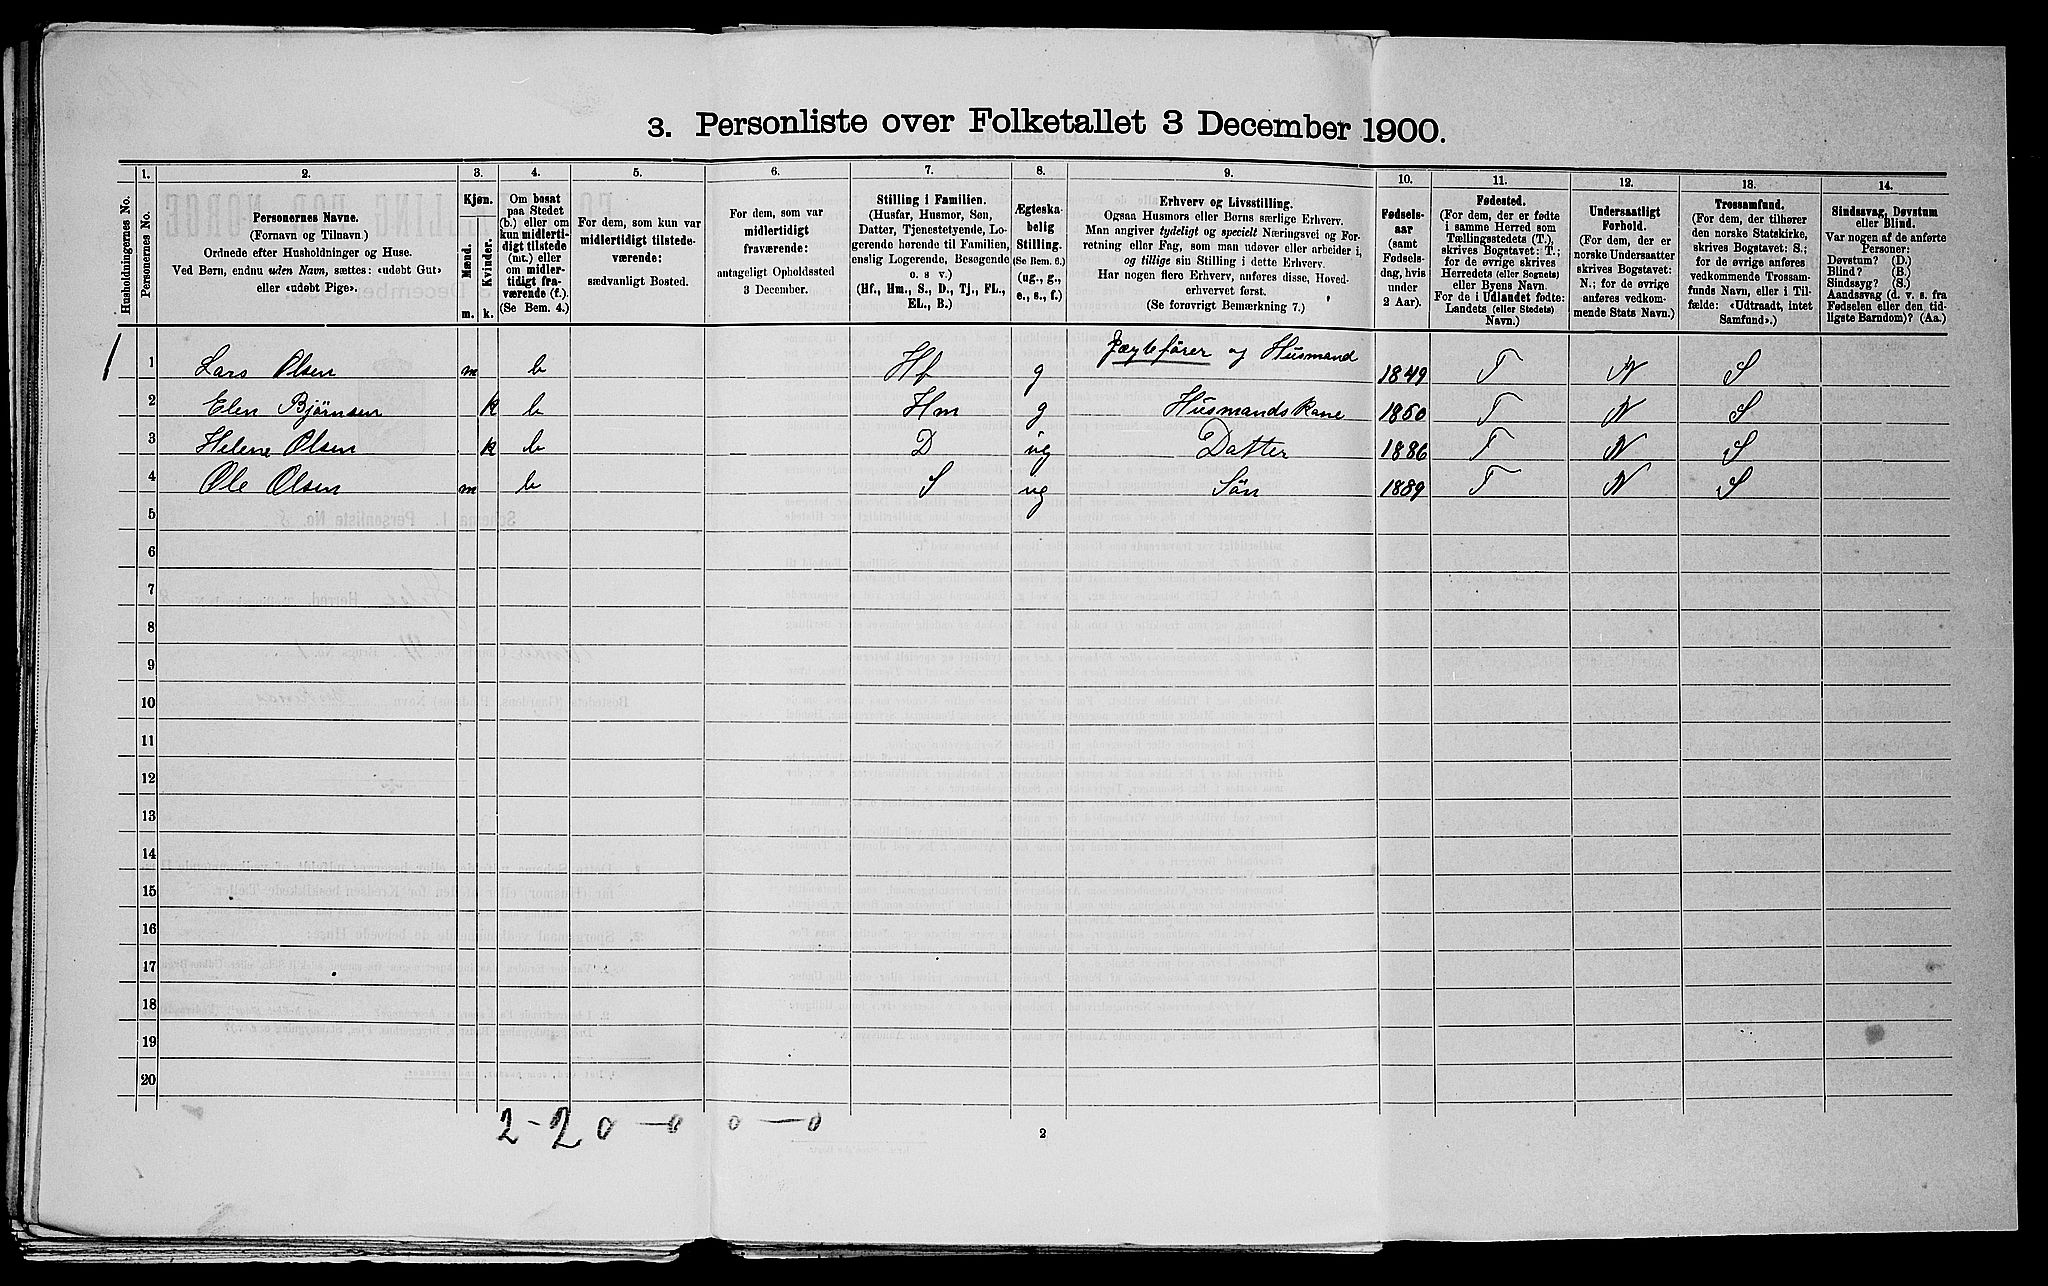 3. Personliste over Folketallet 3 December 1900.
1. 2. 3. 4. 5. 6. 7. 8. 9. 10. 11. 12. 13. 14.
Husholdningernes No.
Personernes No.
Personernes Navne.
(Fornavn og Tilnavn.)
Ordnede efter Husholdninger og Huse.
Ved Børn, endnu uden Navn, sættes: «udøbt Gut»
eller «udøbt Pige».
Kjøn.
Mænd.
Kvinder.
m. k.
Om bosat
paa Stedet
(b.) eller om
kun midlerti-
digt tilstede
(mt.) eller
om midler-
tidigt fra-
værende (f.).
(Se Bem. 4.)
For dem, som kun var
midlertidigt tilstede-
værende:
sædvanligt Bosted.
For dem, som var
midlertidigt
fraværende:
antageligt Opholdssted
3 December.
Stilling i Familien.
(Husfar, Husmor, Søn,
Datter, Tjenestetyende, Lo-
gerende hørende til Familien,
enslig Logerende, Besøgende
o. s. v.)
(Hf., Hm., S., D., Tj., FL.,
EL., B.)
Ægteska-
belig
Stilling.
(Se Bem. 6.)
(ug., g.,
e., s., f.)
Erhverv og Livsstilling.
Ogsaa Husmors eller Børns særlige Erhverv.
Man angiver tydeligt og specielt Næringsvei og For-
retning eller Fag, som man udøver eller arbeider i,
og tillige sin Stilling i dette Erhverv.
Har nogen flere Erhverv, anføres disse, Hoved-
erhvervet først.
(Se forøvrigt Bemærkning 7.)
Fødsels-
aar
(samt
Fødsels-
dag, hvis
under
2 Aar).
Fødested.
(For dem, der er fødte
i samme Herred som
Tællingsstedets (T.),
skrives Bogstavet: T.;
for de øvrige skrives
Herredets (eller Sognets)
eller Byens Navn.
For de i Udlandet fødte:
Landets (eller Stedets)
Navn.)
Undersaatligt
Forhold.
(For dem, der er
norske Undersaatter
skrives Bogstavet:
N.; for de øvrige
anføres vedkom-
mende Stats Navn.)
Trossamfund.
(For dem, der tilhører
den norske Statskirke,
skrives Bogstavet: S.;
for de øvrige anføres
vedkommende Trossam-
funds Navn, eller i Til-
fælde: «Udtraadt, intet
Samfund».)
Sindssvag, Døvstum
eller Blind.
Var nogen af de anførte
Personer:
Døvstum? (D.)
Blind? (B.)
Sindssyg? (S.)
Aandssvag (d. v. s. fra
Fødselen eller den tid-
ligste Barndom)? (Aa.)
1 1 Lars Olsen m b Hf g Jægtefører og Husmand 1849 T N S
2 Elen Bjørnsen k b Hm g Husmandskone 1850 T N S
3 Helene Olsen k b D ug Datter 1886 T N S
4 Ole Olsen m b S ug Sön 1889 T N S
5
6
7
8
9
10
11
12
13
14
15
16
17
18
19
20
2-2 0 - 0 0 - 0
2